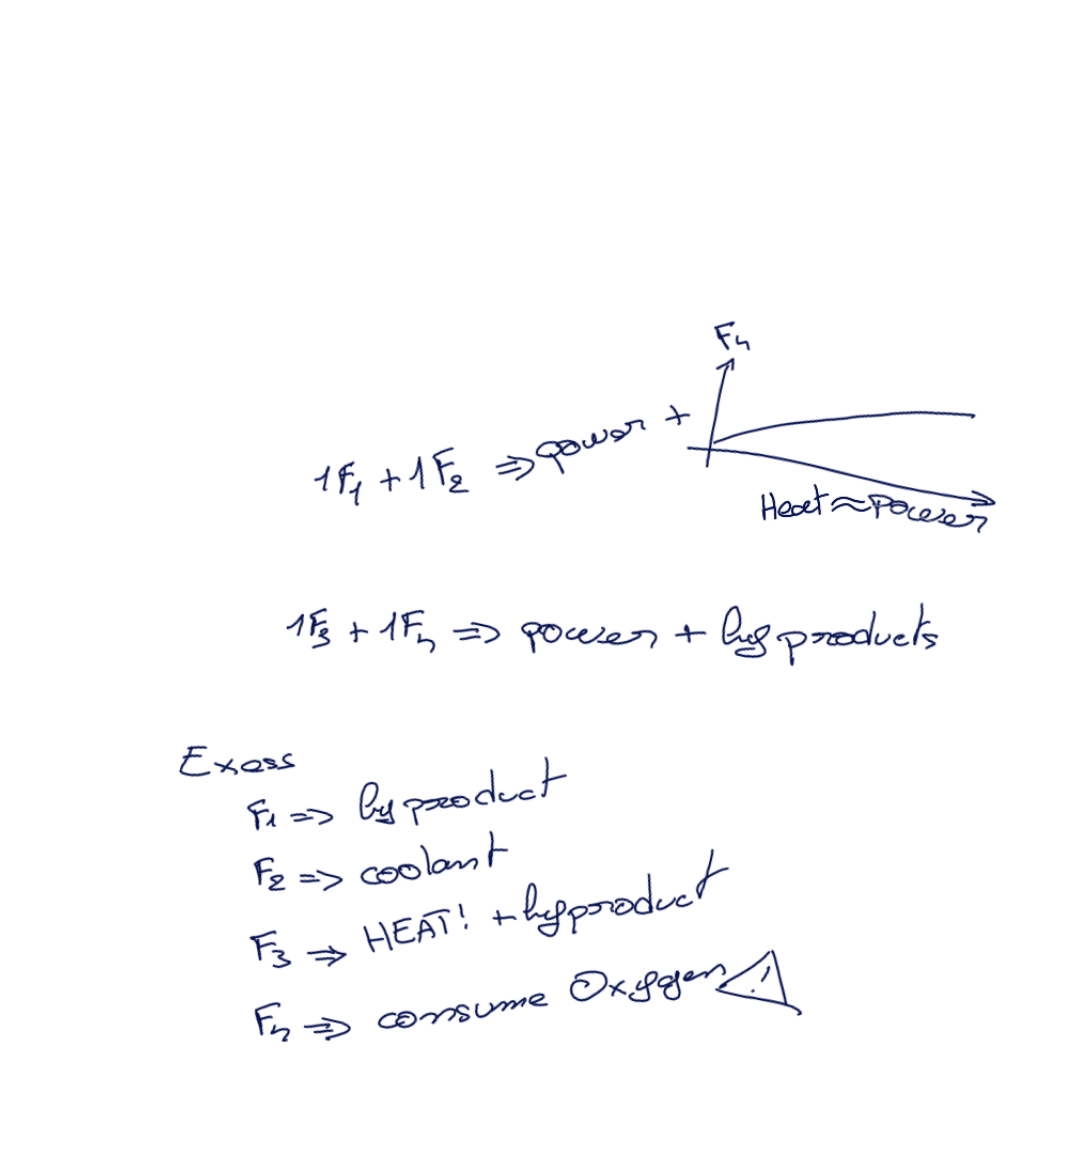 F4
1F1 + 1F2 => power +
Heat ≈ Power
1F3 + 1F4 => power + byproducts
Exess
F1 => byproduct
F2 => coolant
F3 => HEAT! + byproduct
F4 => consume Oxygen ⚠